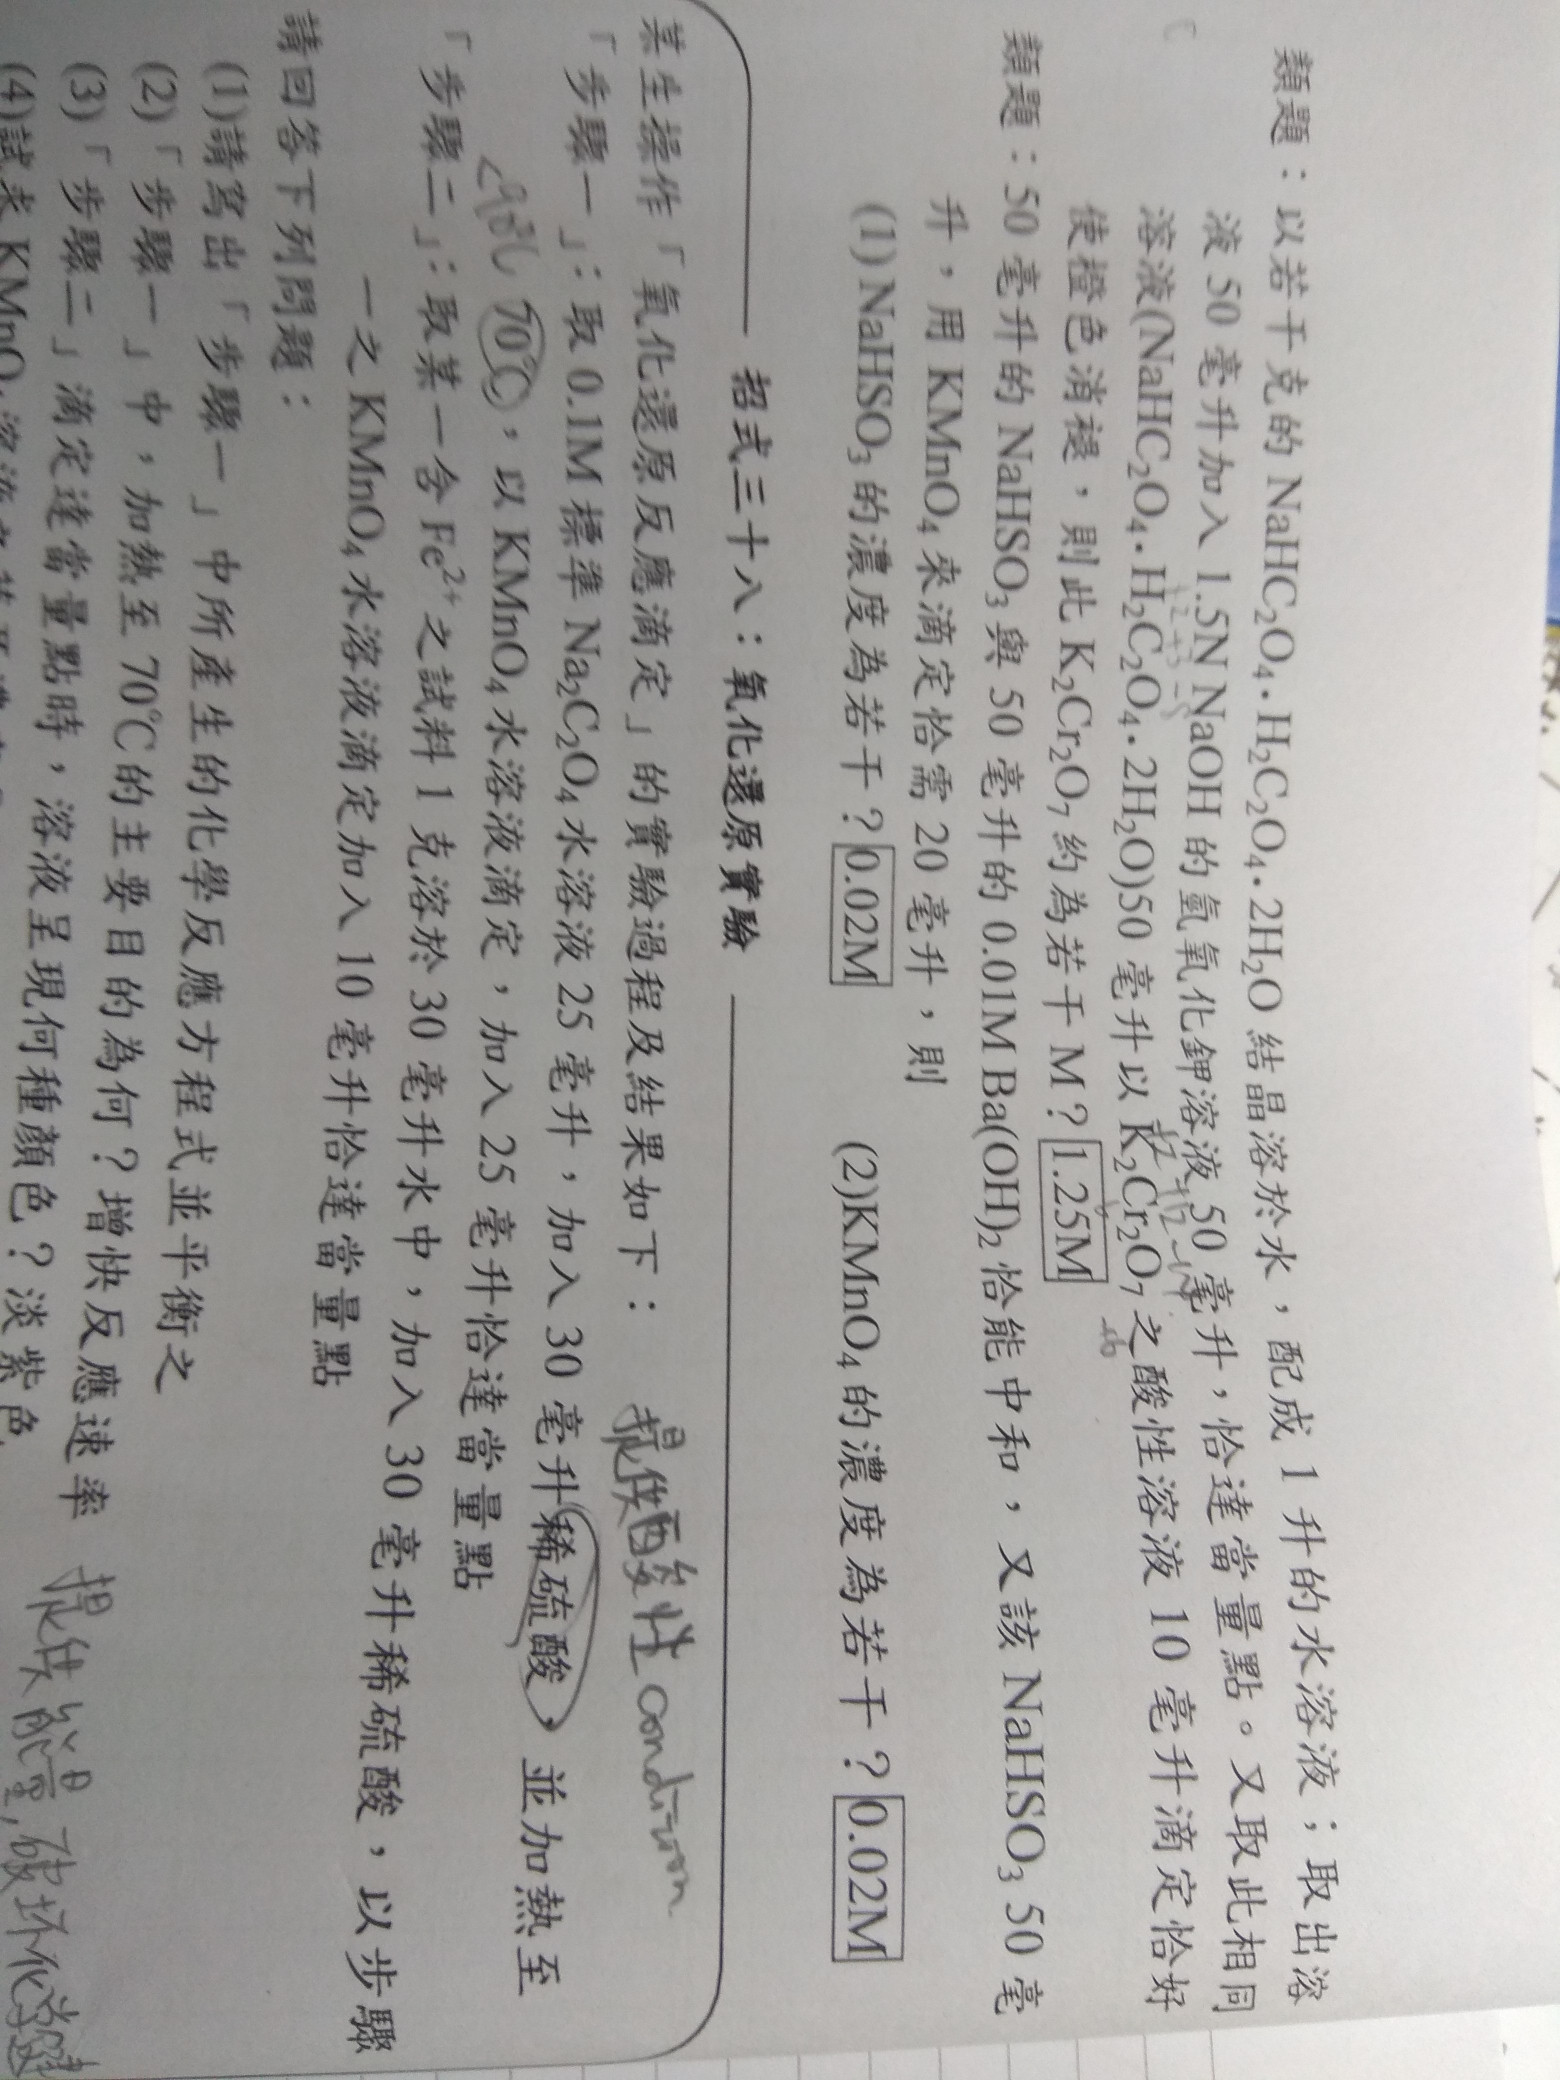 類題：以若干克的 NaHC₂O₄·H₂C₂O₄·2H₂O 結晶溶於水，配成 1 升的水溶液；取出溶
液 50 毫升加入 1.5N NaOH 的氫氧化鉀溶液 50 毫升，恰達當量點。又取此相同
溶液(NaHC₂O₄·H₂C₂O₄·2H₂O)50 毫升以 K₂Cr₂O₇ 之酸性溶液 10 毫升滴定恰好
使橙色消褪，則此 K₂Cr₂O₇ 約為若干 M？1.25M
類題：50 毫升的 NaHSO₃ 與 50 毫升的 0.01M Ba(OH)₂ 恰能中和，又該 NaHSO₃ 50 毫
升，用 KMnO₄ 來滴定恰需 20 毫升，則
(1) NaHSO₃ 的濃度為若干？0.02M (2)KMnO₄ 的濃度為若干？0.02M
招式三十八：氧化還原實驗
某生操作「氧化還原反應滴定」的實驗過程及結果如下： 提供酸性 condition
「步驟一」：取 0.1M 標準 Na₂C₂O₄ 水溶液 25 毫升，加入 30 毫升稀硫酸，並加熱至
70℃，以 KMnO₄ 水溶液滴定，加入 25 毫升恰達當量點
「步驟二」：取某一含 Fe²⁺ 之試料 1 克溶於 30 毫升水中，加入 30 毫升稀硫酸，以步驟
一之 KMnO₄ 水溶液滴定加入 10 毫升恰達當量點
請回答下列問題：
(1)請寫出「步驟一」中所產生的化學反應方程式並平衡之
(2)「步驟一」中，加熱至 70℃的主要目的為何？增快反應速率 提供能量,破坏化學鍵
(3)「步驟二」滴定達當量點時，溶液呈現何種顏色？淡紫色
(4)試求 KMnO₄